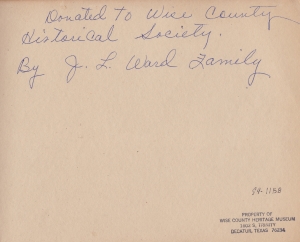 Donated to Wise County
Historical Society.
By J. L. Ward Family
84-1158
PROPERTY OF
WISE COUNTY HERITAGE MUSEUM
1602 S. TRINITY
DECATUR, TEXAS 76234